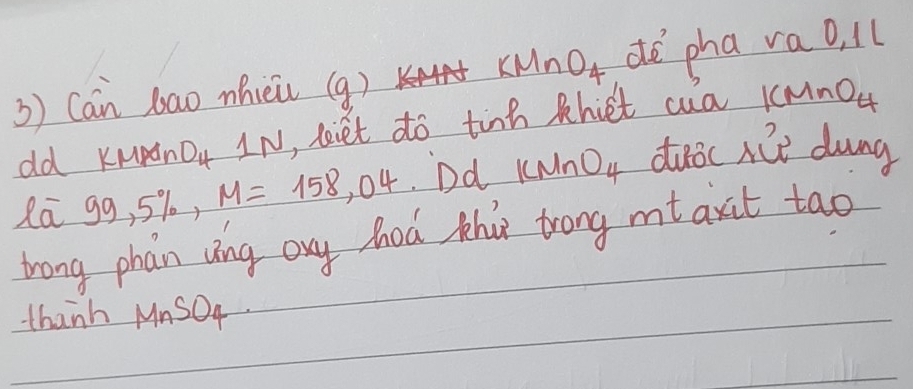 3) Cần bao nhiêu (g) KMnO4 để pha ra 0,1L
dd KMnO4 1N, biết độ tinh khiết của KMnO4
là 99,5%, M = 158,04. Dd KMnO4 được sử dụng
trong phản ứng oxy hoá khử trong mt axit tạo
thành MnSO4.